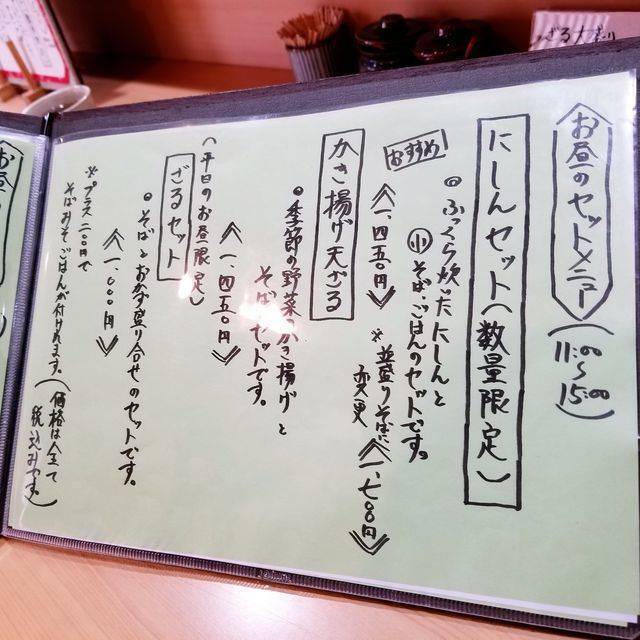 お昼のセットメニュー（11:00～15:00）
にしんセット（数量限定）
おすすめ
◎ふっくら炊いたにしんと
㋛そば、ごはんのセットです。
《一、四五〇円》 ※並盛りそばに
変更《一、七〇〇円》
かき揚げ天ざる
●季節の野菜のかき揚げと
そばのセットです。
《一、四五〇円》
（平日のお昼限定）
ざるセット
●そばとおかず盛り合せのセットです。
《一、〇〇〇円》
※プラス二〇〇円で
そばみそ、ごはんが付けれます。
（価格は全て
税込みです）
ざる大盛り